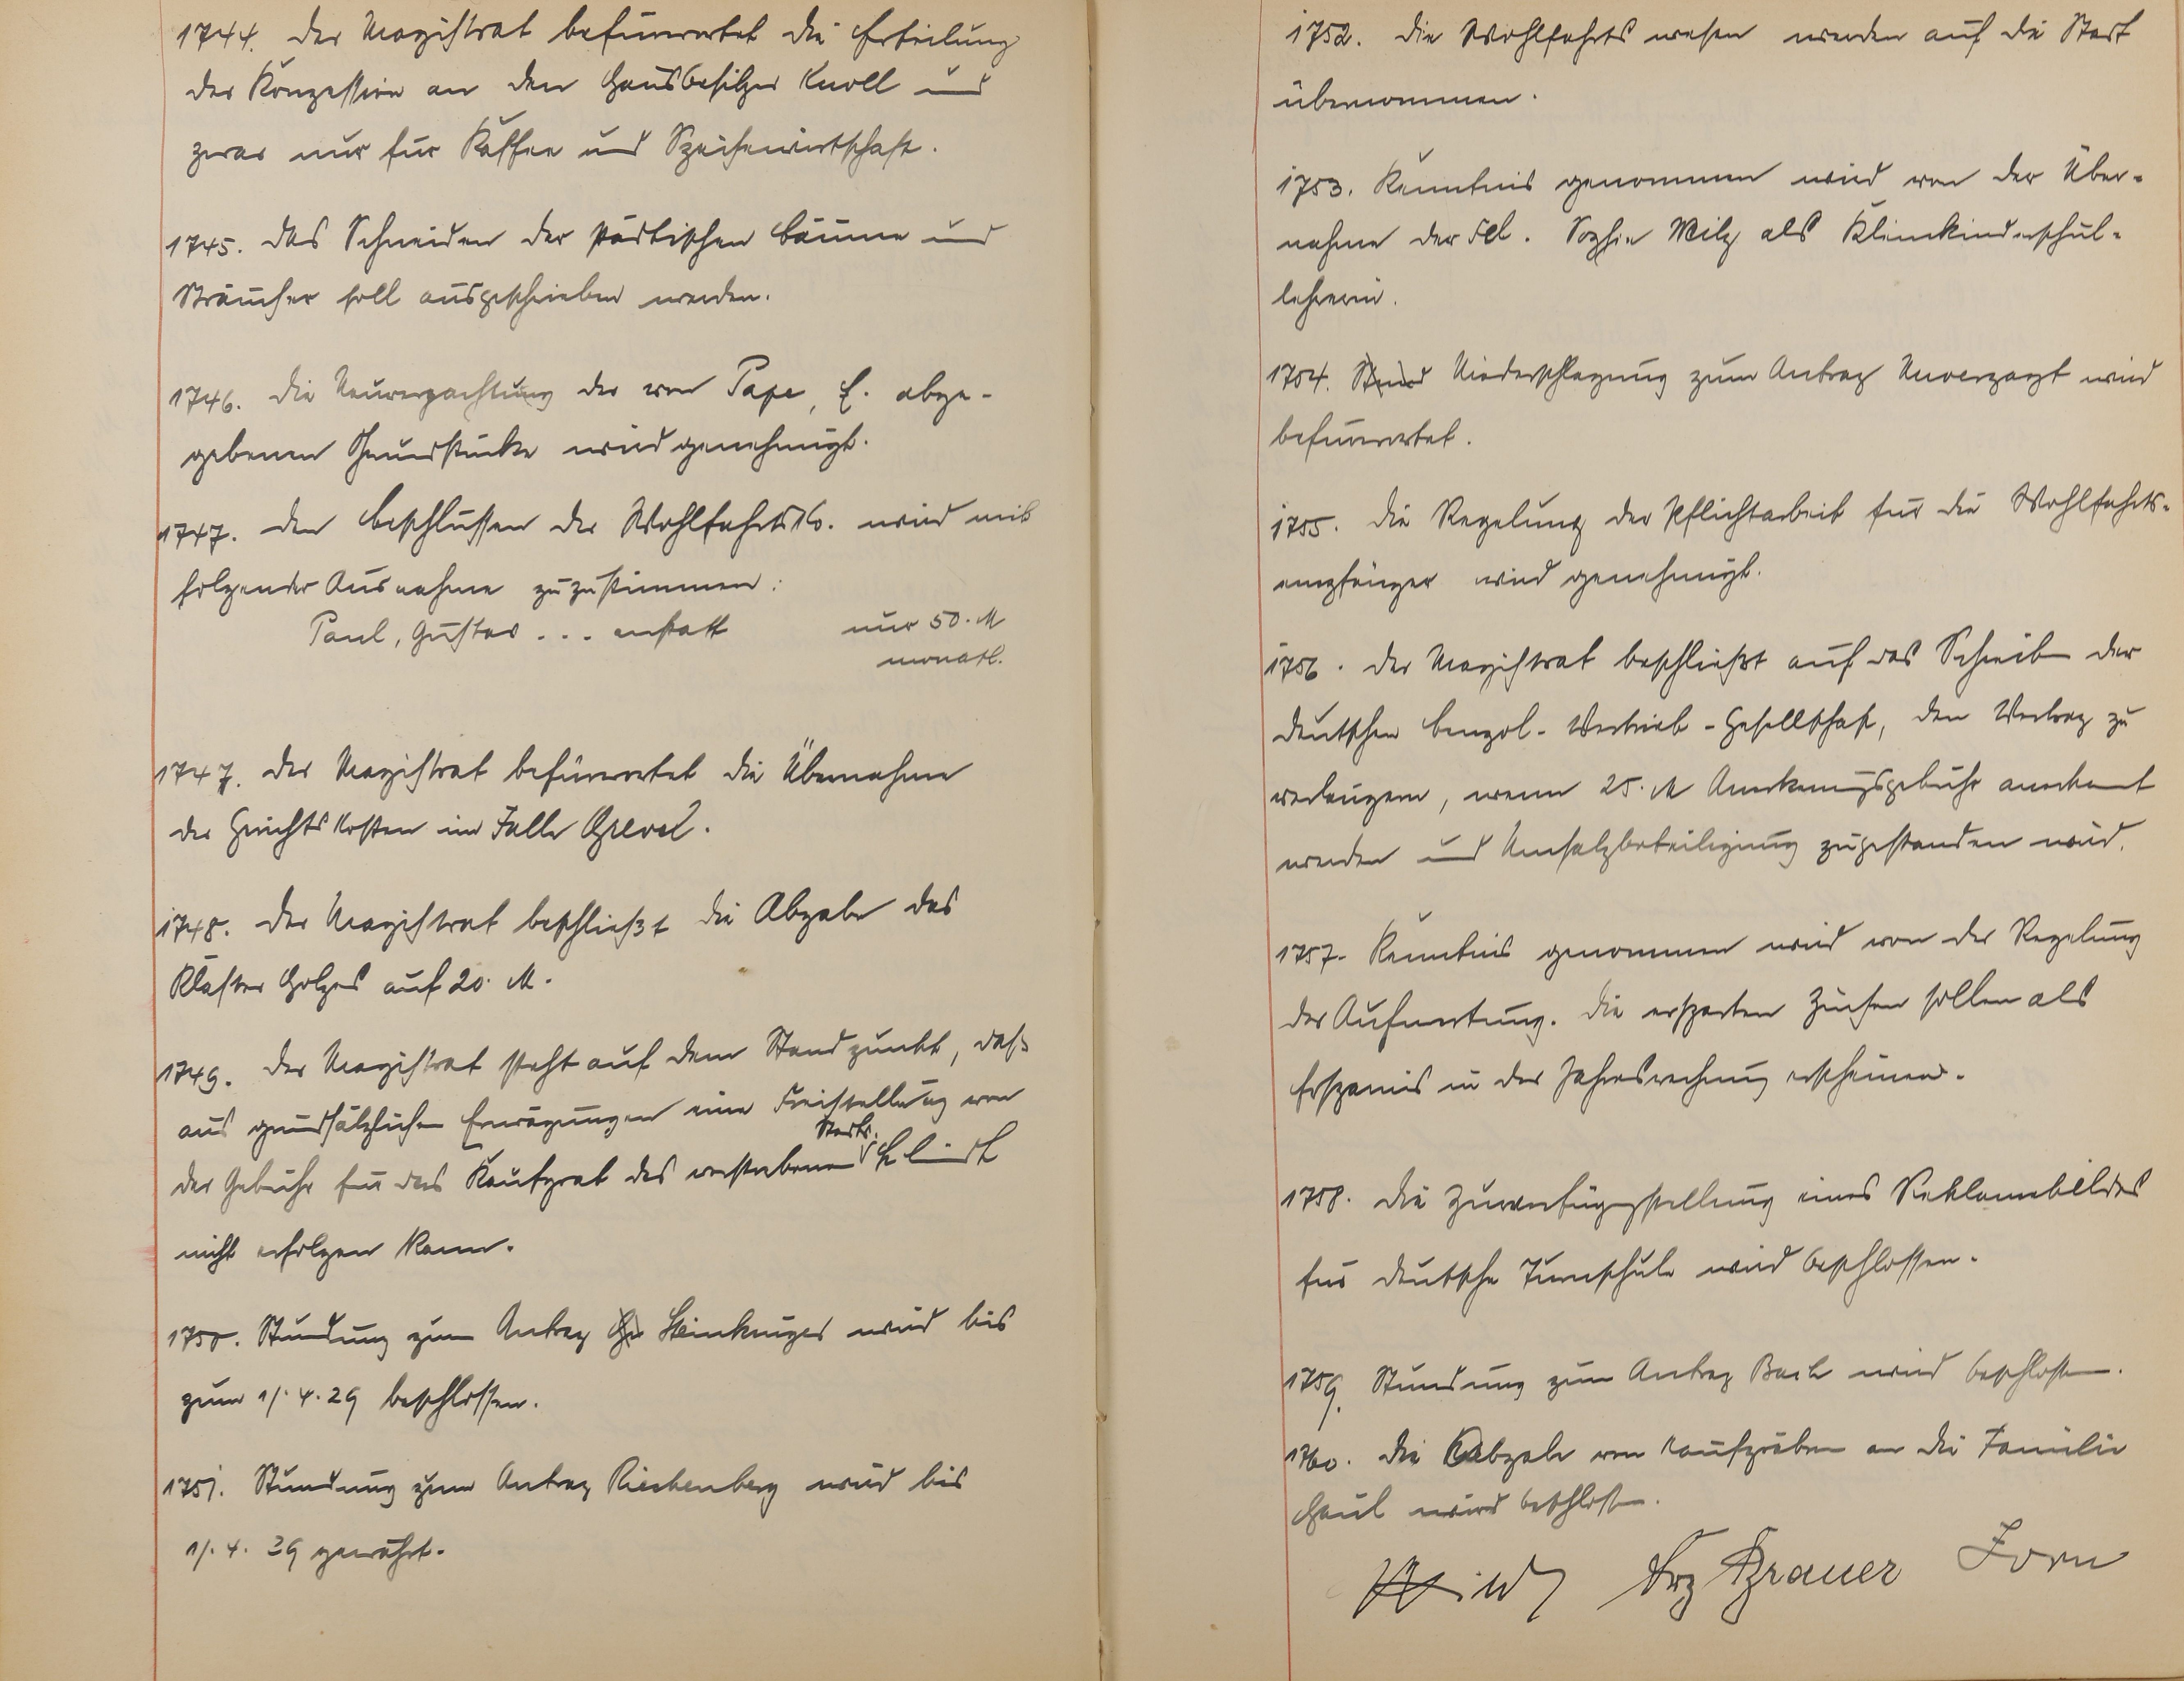 1744. Der Magistrat befürwortet die Erteilung
der Konzession an den Hausbesitzer Knoll und
zwar nur für Kaffee und Speisewirtschaft.
1745. Das Schneiden der städtischen Bäume und
Sträucher soll ausgeschrieben werden.
1746. Die Neuverpachtung der von Pape, E. abge-
gebenen Grundstücke wird genehmigt.
1747. Den Beschlüssen der Wohlfahrtsko. wird mit
folgender Ausnahme zuzustimmen:
Paul, Gustav ... anstatt nur 50. M
monatl.
1747. Der Magistrat befürwortet die Übernahme
der Gerichtskosten im Falle
1748. Der Magistrat beschließt die Abgabe des
Klafter Holzes auf 20. M.
1749. Der Magistrat steht auf dem Standpunkt, daß
aus grundsätzlichen Erwägungen eine Freistellung von
der Gebühr für das Kaufgrab des verstorbenen Stadtr.
nicht erfolgen kann.
1750. Stundung zum Antrag Steinkrüger wird bis
zum 1/. 4. 29 beschlossen.
1751. Stundung zum Antrag Riechenberg wird bis
1/. 4. 29 gewährt.
1752. Die Wohlfahrts wesen werden auf die Stadt
übernommen.
1753. Kenntnis genommen wird von der Über-
nahme der Frl. Sophie Milz als Kleinkinderschul-
lehrerin.
1754. Niederschlagung zum Antrag Unverzagt wird
befürwortet.
1755. Die Regelung der Pflichtarbeit für die Wohlfahrts-
empfänger wird genehmigt.
1756. Der Magistrat beschließt auf das Schreiben der
deutschen Benzol-Vertrieb-Gesellschaft, den Vertrag zu
verlängern, wenn 25. M Anerkennungsgebühr anerkannt
werden und Umsatzbeteiligung zugestanden wird.
1757. Kenntnis genommen wird von der Regelung
der Aufwertung. Die ersparten Zinsen sollen als
Ersparnis in der Jahresrechnung erscheinen.
1758. Die Zurverfügungstellung eines Reklamebildes
für deutsche Turnschule wird beschlossen.
1759. Stundung zum Antrag Bach wird beschlossen.
1760. Die Abgabe von Kaufgräben an die Familie
Gaul wird beschlossen.
Brauer Zorn